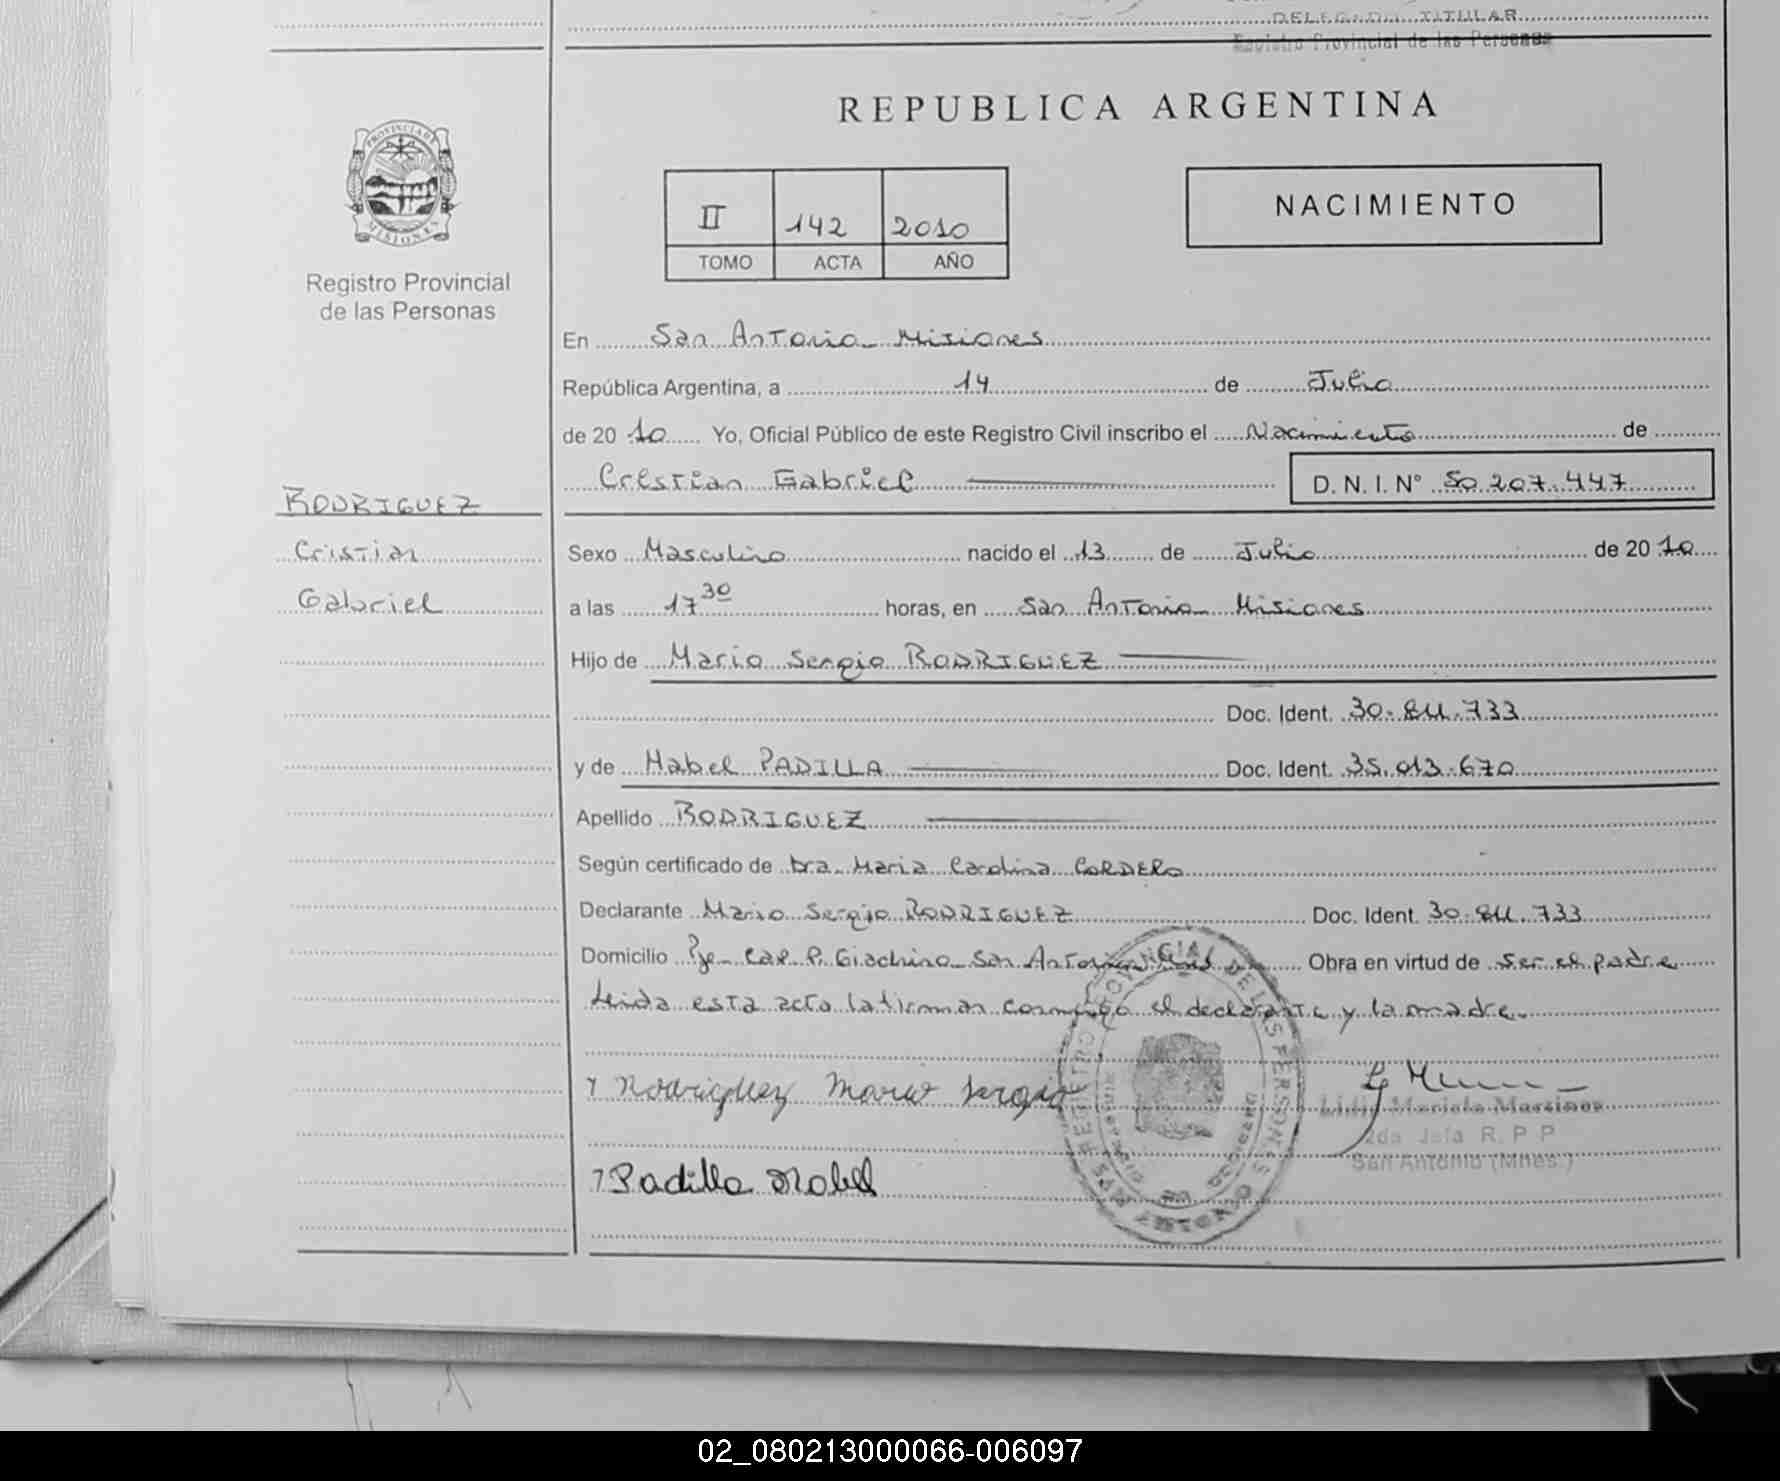 DELEGADO TITULAR
Registro Provincial de las Personas
REPUBLICA ARGENTINA
II 142 2010
TOMO ACTA AÑO
NACIMIENTO
Registro Provincial
de las Personas
En San Antonio Misiones
República Argentina, a 14 de Julio
de 20 10 Yo, Oficial Público de este Registro Civil inscribo el Nacimiento de
Cristian Gabriel D. N. I. N° 50.207.447
RODRIGUEZ
Cristian
Gabriel
Sexo Masculino nacido el 13 de Julio de 20 10
a las 17 30 horas, en San Antonio Misiones
Hijo de Mario Sergio RODRIGUEZ
Doc. Ident. 30.811.733
y de Mabel PADILLA Doc. Ident. 35.013.670
Apellido RODRIGUEZ
Según certificado de Dra. Maria Carolina CORDERO
Declarante Mario Sergio RODRIGUEZ Doc. Ident. 30.811.733
Domicilio Pje. Cap. P. Giachino San Antonio Obra en virtud de ser el padre
Leida esta acta la firman conmigo el declarante y la madre.
Rodriguez Mario Sergio
Padilla Mabel
REGISTRO PROVINCIAL DE LAS PERSONAS
Lidia Mariela Martinez
2da Jefa R. P. P
San Antonio (Mnes.)
PROVINCIA DE MISIONES
02_080213000066-006097